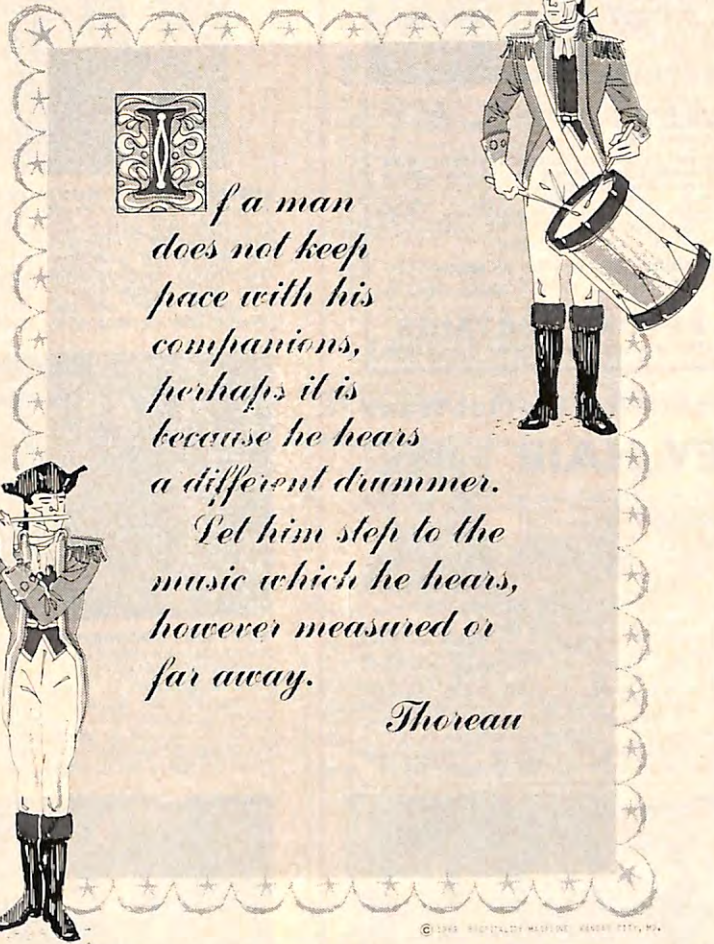 If a man
does not keep
pace with his
companions,
perhaps it is
because he hears
a different drummer.
Let him step to the
music which he hears,
however measured or
far away.
Thoreau
© HOSPITALITY KANSAS CITY, MO.